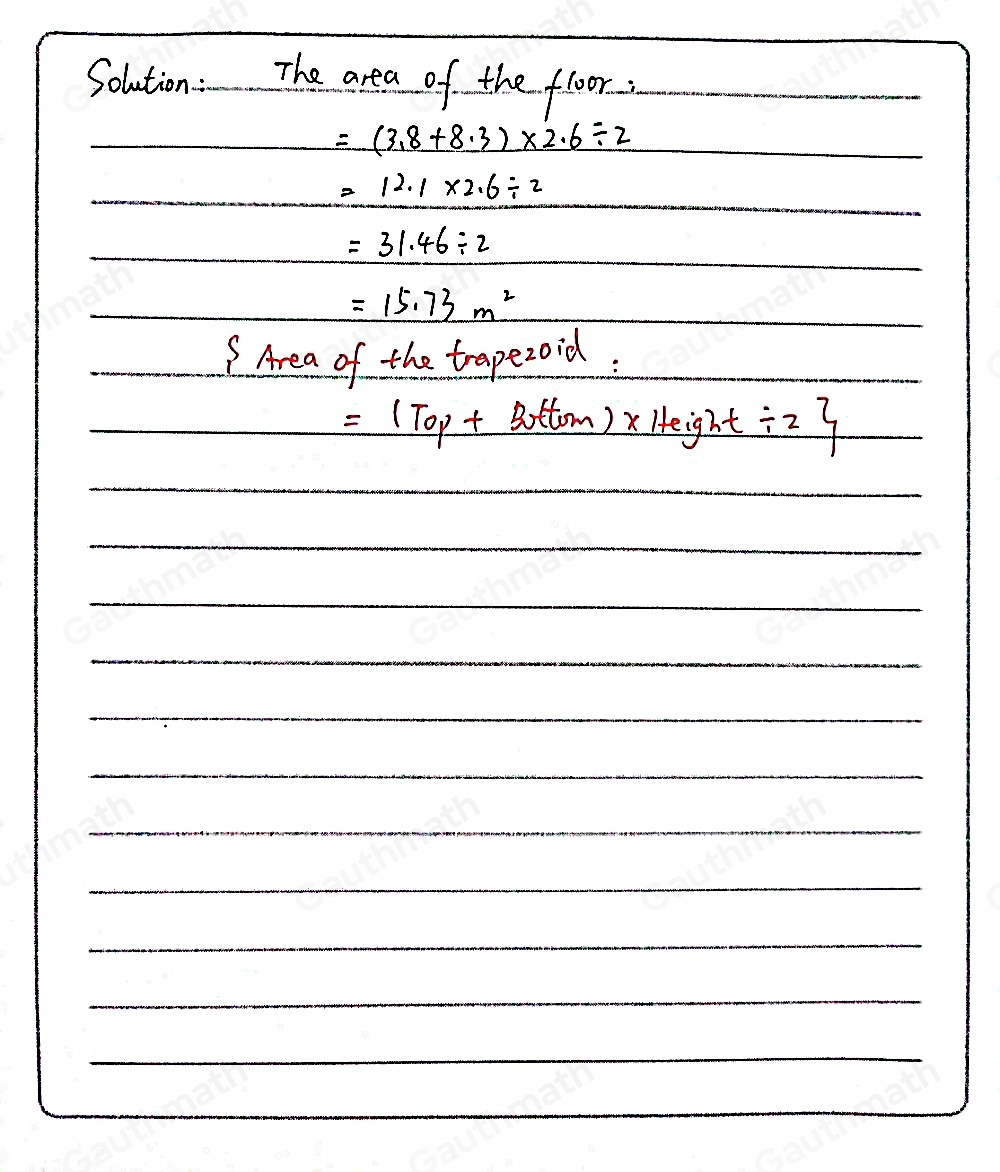 Solution: The area of the floor:
= (3.8+8.3)×2.6÷2
= 12.1×2.6÷2
= 31.46÷2
= 15.73 m²
{ Area of the trapezoid :
= (Top + Bottom)×Height ÷2 }
Gauthmath